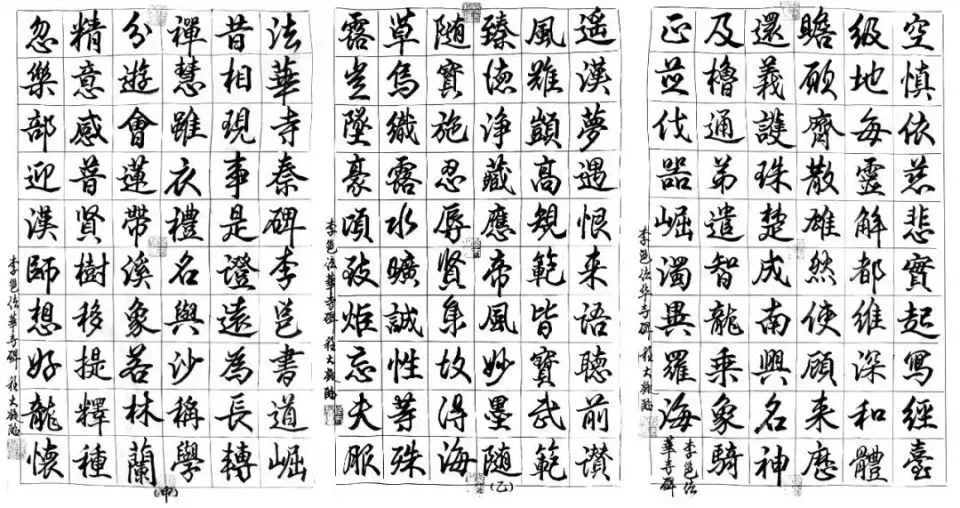 法華寺秦碑李邕書道崛
昔相現事是證遠為長轉
禪慧雖衣禮名與沙稱學
分遊會蓮帶溪象若林蘭
精意感普賢樹移提釋種
忽樂部迎漢師想好龍懷
李邕法華寺碑 程大臨
遥漢夢遇恨来語聽前讃
風雖顗高規範皆寳武範
臻德浄藏應帝風妙墨随
随寳施忍辱賢身故得海
草烏織露水曠誠性等殊
露豈墜豪頃致炬忘夫服
李邕法華寺碑 程大臨
(乙)
空慎依慈悲實起寫經臺
级地每靈解都維深和體
瞻顧齊散雄然使顧来歷
還義護珠楚成南興名神
及櫓通弟遣智龍乘象騎
正並伐器崛濁異羅海
李邕法华寺碑 程大臨
李邕法
華寺碑